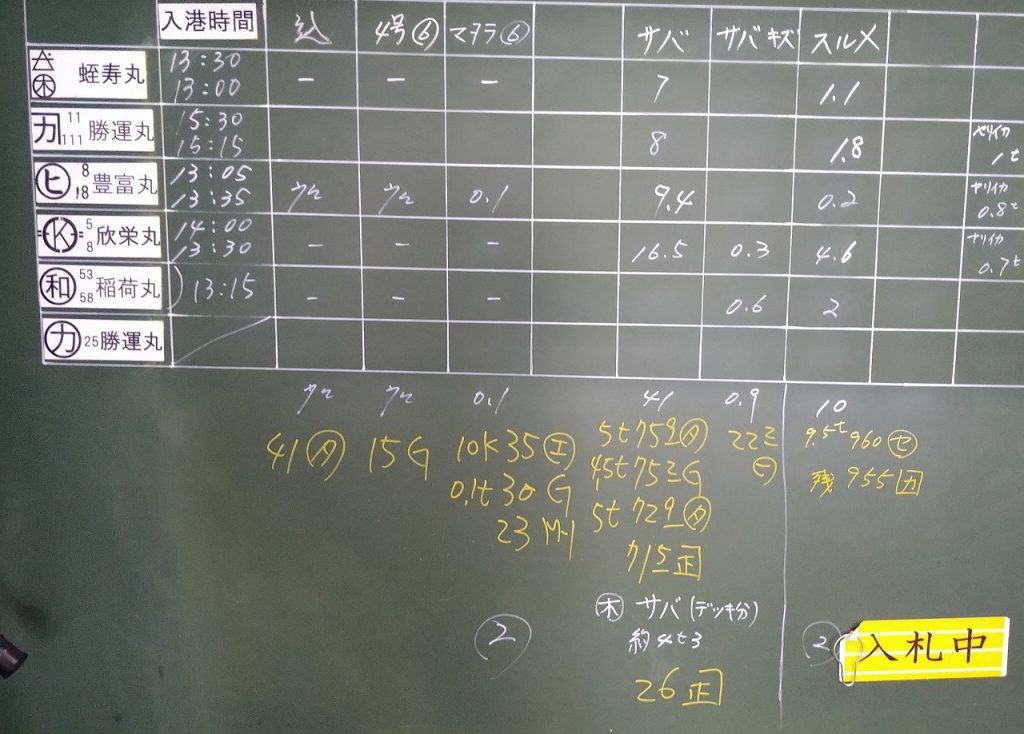 入港時間 込 4号⑥ マダラ⑥ サバ サバキズ スルメ
㊍ 蛭寿丸 13:30 13:00 － － － 7 1.1
11 111 勝運丸 15:30 15:15 8 1.8 ヤリイカ 1t
ヒ 8 18 豊富丸 13:05 13:35 ケ ケ 0.1 9.4 0.2 ヤリイカ 0.8t
K 5 8 欣栄丸 14:00 13:30 － － － 16.5 0.3 4.6 ヤリイカ 0.7t
和 53 58 稲荷丸 13:15 － － － 0.6 2
カ 25 勝運丸
0.1 41 0.9 10
41 15G 10K35 5t759 223 9.5t960
0.1t30G 4.5t753G 残955
23 5t729
715正
㊍ サバ(デッキ分)
約4t3
② ② 入札中
26正